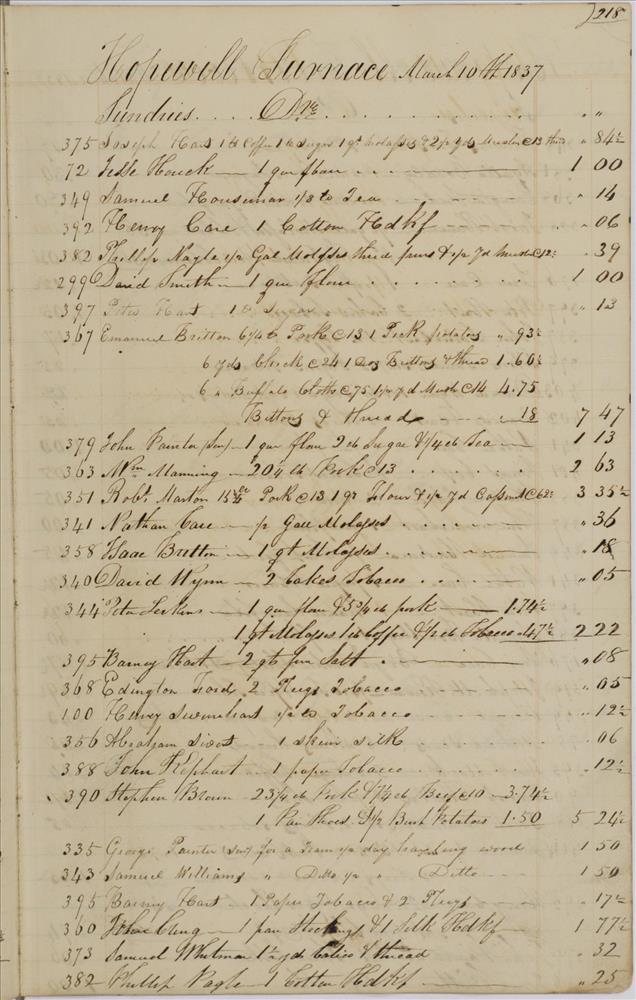 218
Hopewell Furnace March 10th 1837
Sundries Drs " "
375 Joseph Hart 1 lb Coffee 1 lb Sugar 1 qt Molasses & 2 1/2 yds Muslin @ 13 thrd " 84½
72 Jesse Houck 1 qur flour 1 00
349 Samuel Housumar 1/8 lb Tea " 14
392 Henry Care 1 Cotton Hdkf " 06
382 Phillip Nagle 1/2 Gal Molasses thred & 1/2 yd Muslin @ 12½ " 39
299 David Smith 1 qur Flour 1 00
397 Peter Hart 1 lb Sugar " 13
367 Emanuel Britton 6 1/4 lb Pork @ 13 1 Peck potatoes " 93½
6 yds Check @ 24 1 Doz Buttons & thread 1.60½
6 " Buffalo Cloth @ 75 1 1/2 yd Musli @ 14 4.75
Buttons & thread " 18 7 47
379 John Painter (Sen) 1 qur flour 2 lb Sugar & 1/4 lb Tea 1 13
363 Wm Manning 20 1/4 lb Pork @ 13 2 63
351 Robt Marton Pork @ 13 1 qr Flour & 1/2 yd Cassinet @ 62½ 3 35½
341 Nathan Care 1/2 Gall Molasses " 36
358 Isaac Britton 1 qt Molasses " 18
340 David Wynn 2 Cakes Tobacco " 05
344 Peter 1 qur flour & 5 3/4 lb pork 1.74½
1 qt Molasses 1 lb Coffee & 1/2 lb Tobacco " 47½ 2 22
395 Barney Hart 2 qts fine Salt " 08
368 Edington Ford 2 Plugs Tobacco " 05
100 Henry Swinehart 1/2 lb Tobacco " 12½
356 Abraham 1 skein silk " 06
388 John Kephart 1 paper Tobacco " 12½
390 Stephen Brown 23 3/4 lb Pork & 7 1/4 lb Beef @ 10 3.74½
1 Pair Shoes & 1/2 Bush Potatoes 1.50 5 24½
335 George Painter for a Team 1/2 day hauling wood 1 50
343 Samuel Williams " Ditto 1/2 " Ditto 1 50
395 Barney Hart 1 Paper Tobacco & 2 Plugs " 17½
360 John Cling 1 pair Stockings & 1 Silk Hdkf 1 77½
373 Samuel Whitman 1½ yds Calico & thread " 32
382 Phillip Nagle 1 Cotton Hdkf " 25